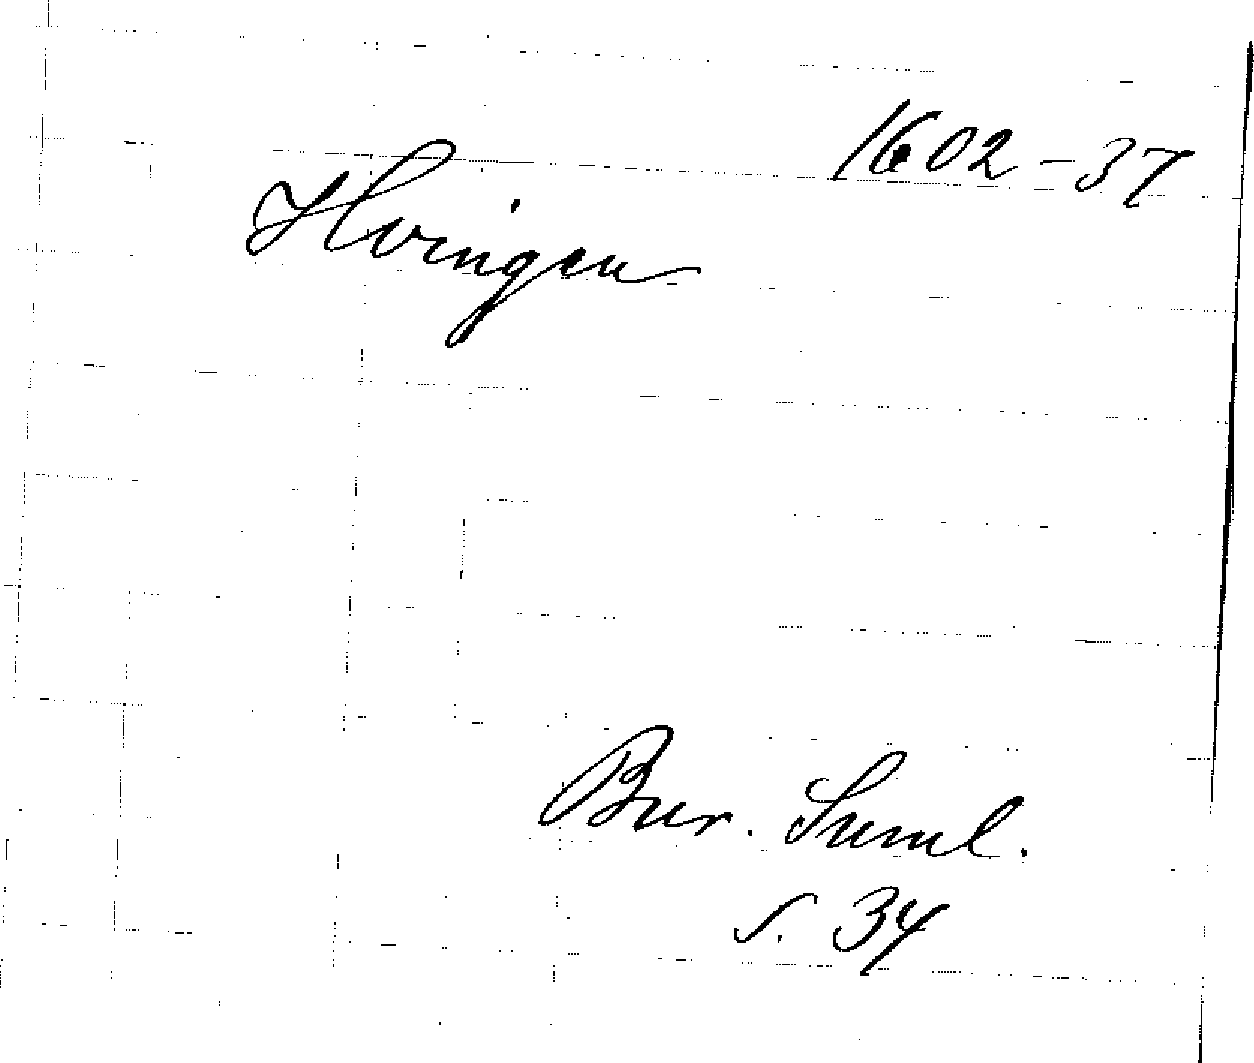 1602-37
Hvingen
Bur. Suml.
s. 34